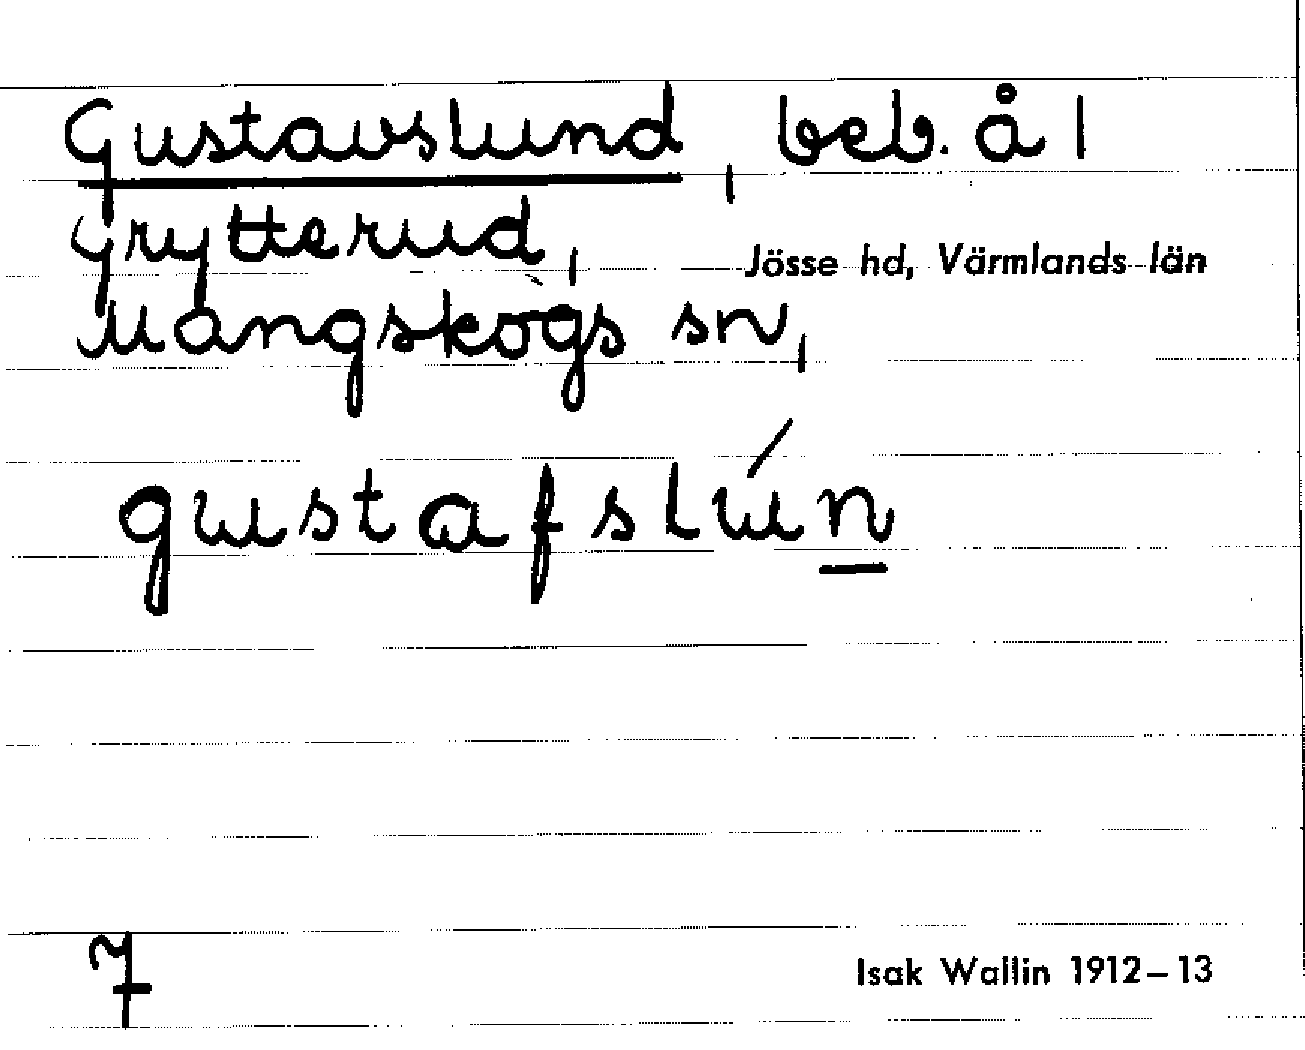 Gustavslund, beb. å 1
Grytterud,
Jösse hd, Värmlands län
Mangskogs sn,
gustafslún
7
Isak Wallin 1912–13